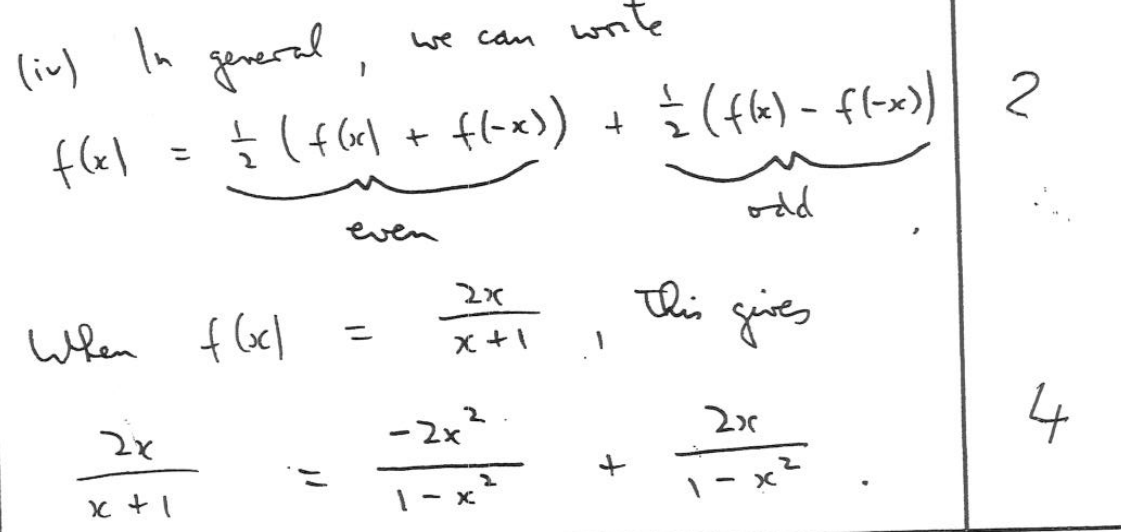 (iv) In general, we can write
f(x) = 1/2 (f(x) + f(-x)) + 1/2 (f(x) - f(-x)) 2
even odd ,
When f(x) = 2x/(x+1), this gives
2x/(x+1) = -2x²/(1-x²) + 2x/(1-x²). 4